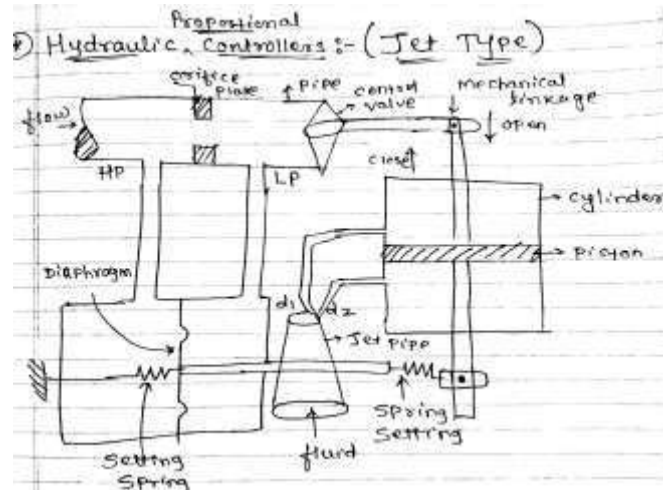 Proportional
Hydraulic Controllers :- (Jet Type)
orifice
plate
pipe
control
valve
mechanical
linkage
flow
open
HP
LP
close
cylinder
piston
Diaphragm
d1
d2
Jet pipe
Spring
Setting
fluid
Setting
Spring